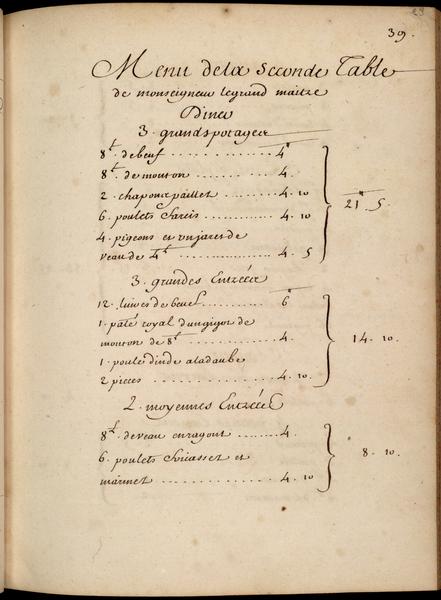 39.
Menu dela Seconde Table
de monseigneur legrand maitre
Diner
3. grands potages
8ᵗ. debeuf ............ 4ᵗᵗ
8ᵗ. de mouton ............ 4.
2. chapons paillet ............ 4. 10
6. poulets farcis ............ 4. 10 21ᵗᵗ 5.
4. pigeons et un jaret de
veau de 4ᵗ ............ 4. 5
3. grandes Entrées
12. livres de beuf ............ 6ᵗᵗ
1. paté royal dungigot de
mouton de 8ᵗ ............ 4. 14. 10.
1. poule dinde aladaube
2 pieces ............ 4. 10.
2. moyennes Entrées
8ᵗ. deveau enragout ........ 4.
6. poulets fricassez et 8. 10.
marinet ............ 4. 10